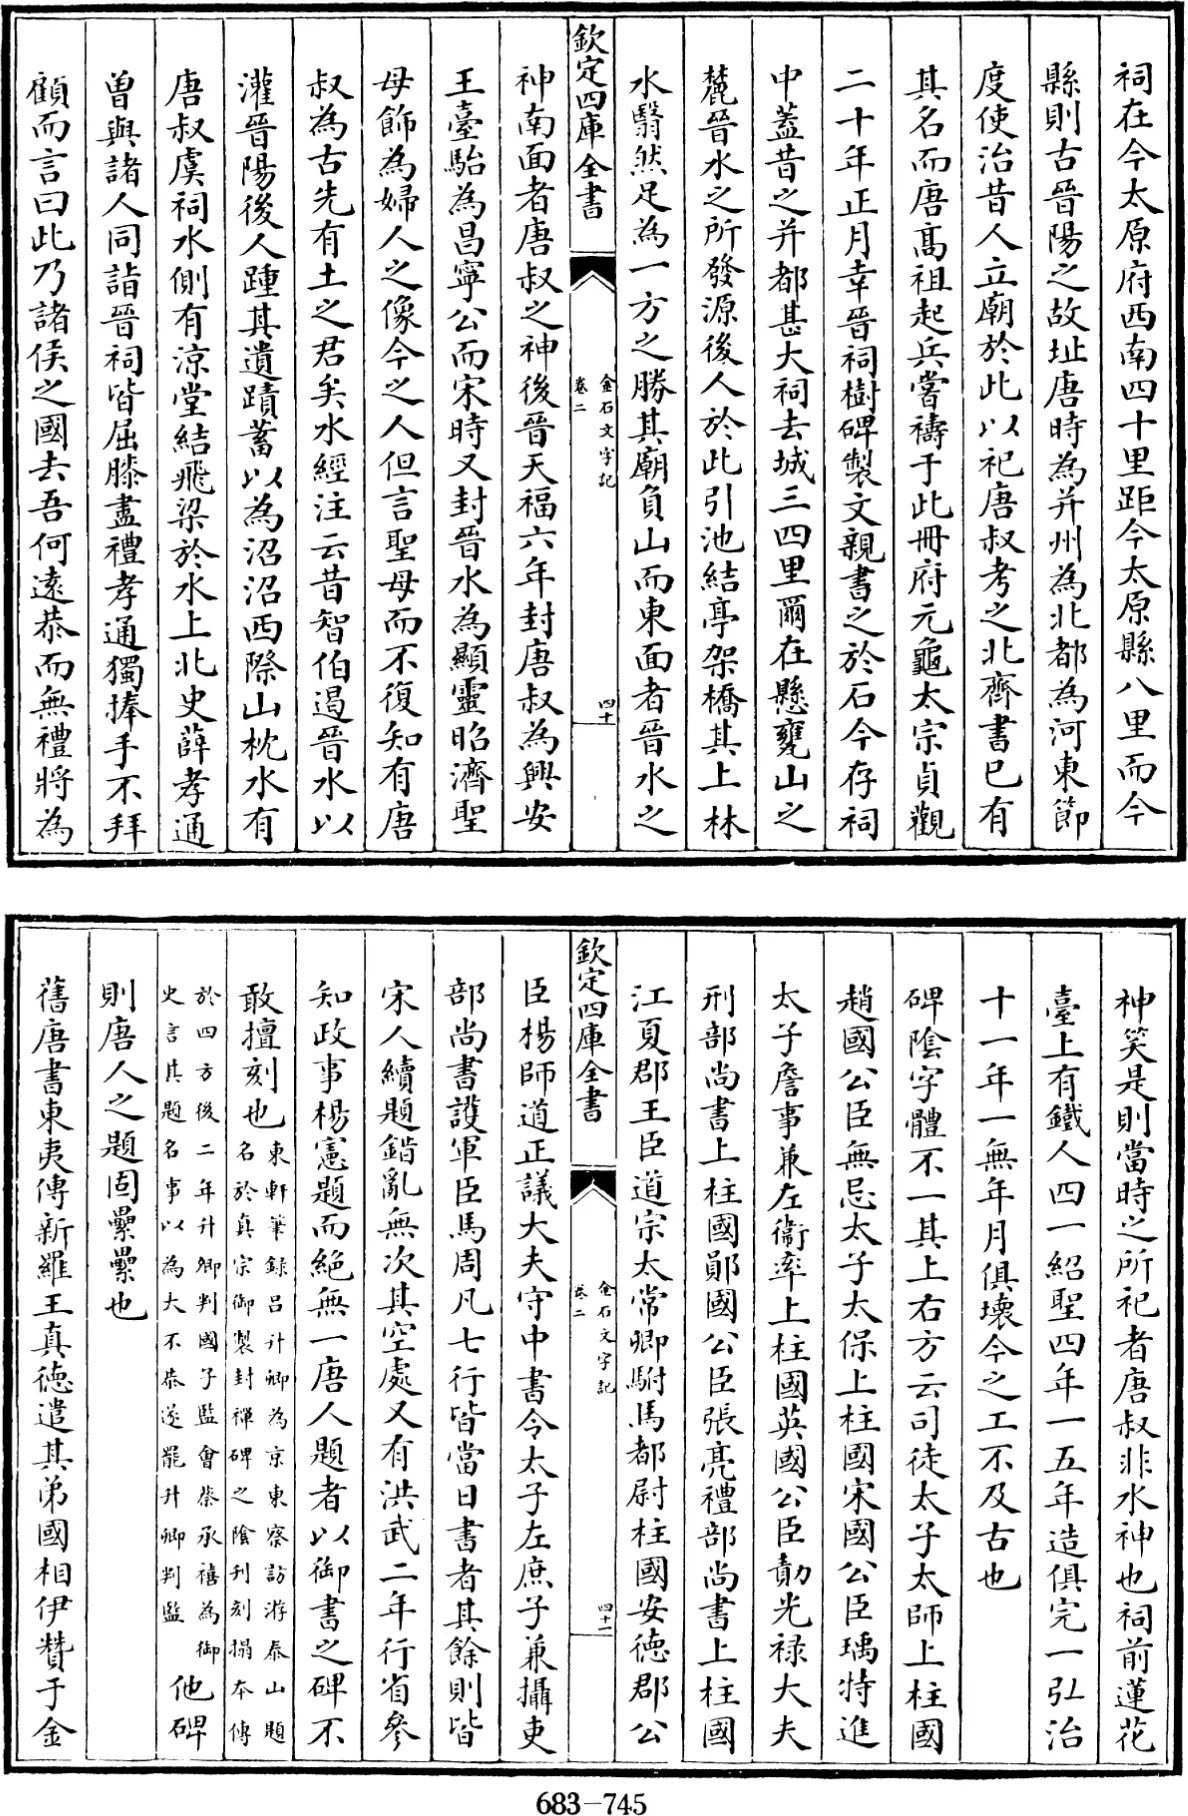 祠在今太原府西南四十里距今太原縣八里而今
縣則古晉陽之故址唐時為并州為北都為河東節
度使治昔人立廟於此以祀唐叔考之北齊書已有
其名而唐髙祖起兵嘗禱于此冊府元龜太宗貞觀
二十年正月幸晉祠樹碑製文親書之於石今存祠
中蓋昔之并都甚大祠去城三四里爾在懸甕山之
麓晉水之所發源後人於此引池結亭架橋其上林
水翳然足為一方之勝其廟負山而東面者晉水之
欽定四庫全書
金石文字記
卷二
四十
神南面者唐叔之神後晉天福六年封唐叔為興安
王臺駘為昌寧公而宋時又封晉水為顯靈昭濟聖
母飾為婦人之像今之人但言聖母而不復知有唐
叔為古先有土之君矣水經注云昔智伯遏晉水以
灌晉陽後人踵其遺蹟蓄以為沼沼西際山枕水有
唐叔虞祠水側有涼堂結飛梁於水上北史薛孝通
曾與諸人同詣晉祠皆屈膝盡禮孝通獨捧手不拜
顧而言曰此乃諸侯之國去吾何遠恭而無禮將為
神笑是則當時之所祀者唐叔非水神也祠前蓮花
臺上有鐵人四一紹聖四年一五年造俱完一弘治
十一年一無年月俱壞今之工不及古也
碑陰字體不一其上右方云司徒太子太師上柱國
趙國公臣無忌太子太保上柱國宋國公臣瑀特進
太子詹事兼左衞率上柱國英國公臣勣光禄大夫
刑部尚書上柱國鄖國公臣張亮禮部尚書上柱國
江夏郡王臣道宗太常卿駙馬都尉柱國安徳郡公
欽定四庫全書
金石文字記
卷二
四十一
臣楊師道正議大夫守中書令太子左庶子兼攝吏
部尚書護軍臣馬周凡七行皆當日書者其餘則皆
宋人續題錯亂無次其空處又有洪武二年行省參
知政事楊憲題而絶無一唐人題者以御書之碑不
敢擅刻也東軒筆録吕升卿為京東察訪游泰山題
名於真宗御製封禪碑之陰刊刻搨本傳
於四方後二年升卿判國子監會蔡承禧為御
史言其題名事以為大不恭遂罷升卿判監他碑
則唐人之題固纍纍也
舊唐書東夷傳新羅王真徳遣其弟國相伊贊于金
683-745